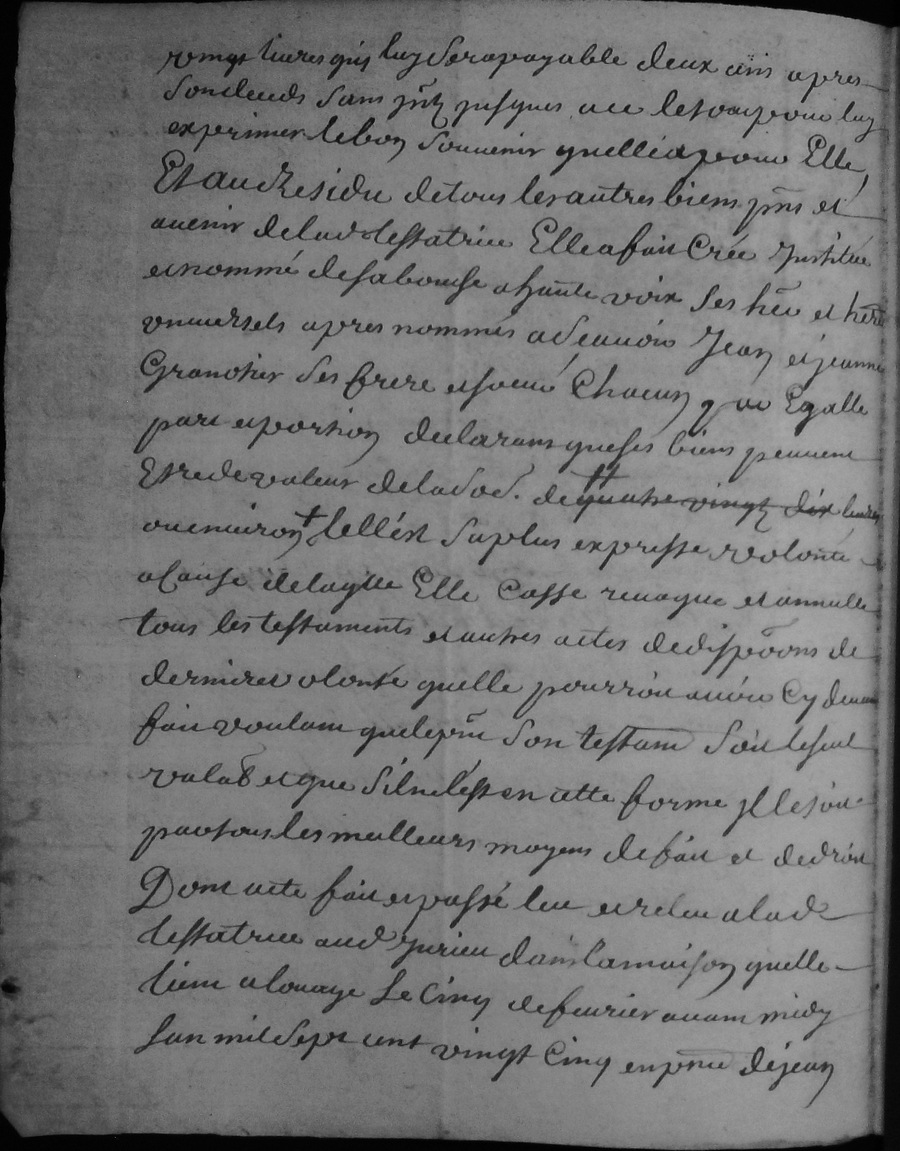 vingt livres qui luy sera payable deux ans apres
son deceds sans jusques a ce le tout pour luy
exprimer le bon souvenir quelle a pour Elle,
Et au Residu de tous les autres biens pnts et
avenir de lad testatrice Elle a fait Crée Institué
et nommé de sa bouche a haute voix ses hers et hers
universels apres nommés a scavoir Jean et jeanne
ses frere et soeur Chacun p Egalle
part et portion declarant que ses biens peuvent
Estre de valeur de la so͞e. de ++ quatre vingt dix livres
ou environ + telle est sa plus expresse volonté
a Cause de laqlle Elle Casse revoque et annulle
tous les testaments et autres actes de dispõons de
derniere volonté quelle pourroit avoir Cy devant
fait voulant que le pnt son testamt soit le seul
valab et que s'il ne lest en cette forme Il le soit
par tous les meilleurs moyens de fait et de droit
Dont acte fait et passé leu et releu a lad
testatrice aud Jurieu dans la maison quelle
tient a louage Le Cinq de fevrier avant midy
lan mil sept cent vingt Cinq en pnce de jean